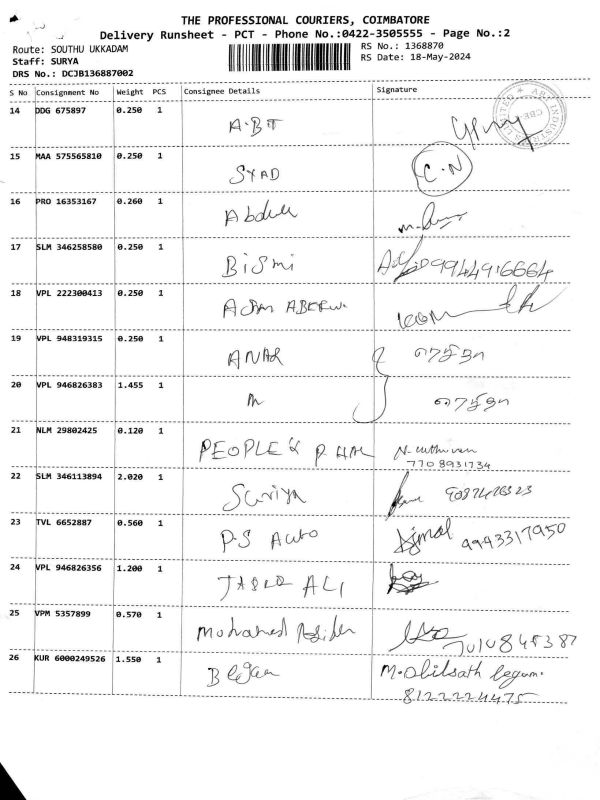 THE PROFESSIONAL COURIERS, COIMBATORE
Delivery Runsheet - PCT - Phone No.:0422-3505555 - Page No.:2
Route: SOUTHU UKKADAM
Staff: SURYA
DRS No.: DCJB136887002
RS No.: 1368870
RS Date: 18-May-2024
S No Consignment No Weight PCS Consignee Details Signature
14 DDG 675897 0.250 1 A.BT
15 MAA 575565810 0.250 1 SYAD C.N
16 PRO 16353167 0.260 1
17 SLM 346258580 0.250 1 BiSmi 9944916664
18 VPL 222300413 0.250 1
19 VPL 948319315 0.250 1 ANAR
20 VPL 946826383 1.455 1
21 NLM 29802425 0.120 1 PEOPLE'S P.HAL
7708931734
22 SLM 346113894 2.020 1 Suriya
23 TVL 6652887 0.560 1 P.S Auto Ajmal 9993317950
24 VPL 946826356 1.200 1 ALI
25 VPM 5357899 0.570 1 Mohamed
26 KUR 6000249526 1.550 1 M.
8122224475